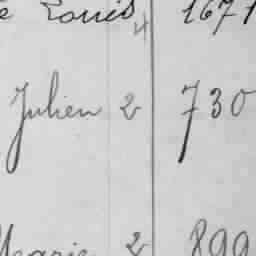 Louis 4 1671
Julien 2 730
Marie 2 899